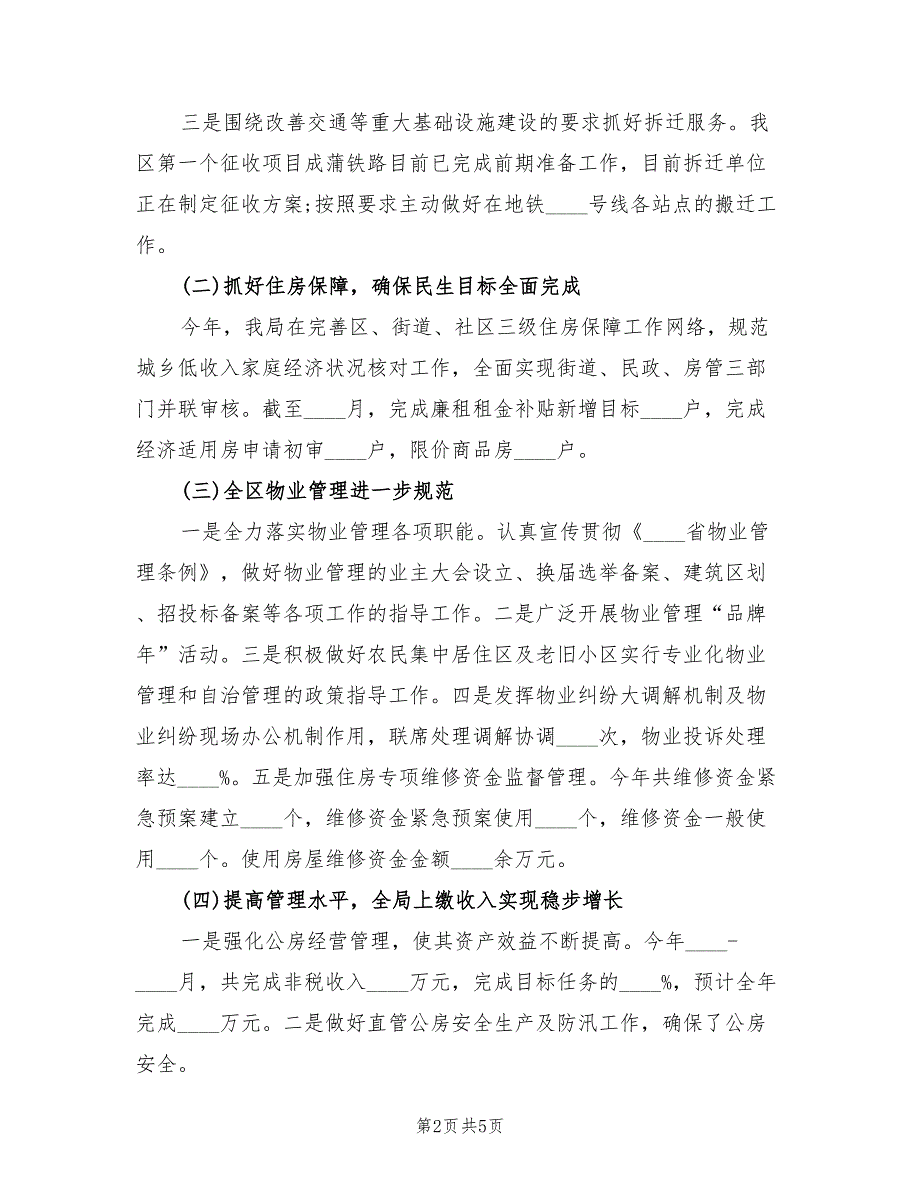 三是围绕改善交通等重大基础设施建设的要求抓好拆迁服务。我
区第一个征收项目成蒲铁路目前已完成前期准备工作，目前拆迁单位
正在制定征收方案;按照要求主动做好在地铁____号线各站点的搬迁工
作。
(二)抓好住房保障，确保民生目标全面完成
今年，我局在完善区、街道、社区三级住房保障工作网络，规范
城乡低收入家庭经济状况核对工作，全面实现街道、民政、房管三部
门并联审核。截至____月，完成廉租租金补贴新增目标____户，完成
经济适用房申请初审____户，限价商品房____户。
(三)全区物业管理进一步规范
一是全力落实物业管理各项职能。认真宣传贯彻《____省物业管
理条例》，做好物业管理的业主大会设立、换届选举备案、建筑区划
、招投标备案等各项工作的指导工作。二是广泛开展物业管理“品牌
年”活动。三是积极做好农民集中居住区及老旧小区实行专业化物业
管理和自治管理的政策指导工作。四是发挥物业纠纷大调解机制及物
业纠纷现场办公机制作用，联席处理调解协调____次，物业投诉处理
率达____%。五是加强住房专项维修资金监督管理。今年共维修资金紧
急预案建立____个，维修资金紧急预案使用____个，维修资金一般使
用____个。使用房屋维修资金金额____余万元。
(四)提高管理水平，全局上缴收入实现稳步增长
一是强化公房经营管理，使其资产效益不断提高。今年____-
____月，共完成非税收入____万元，完成目标任务的____%，预计全年
完成____万元。二是做好直管公房安全生产及防汛工作，确保了公房
安全。
第2页共5页